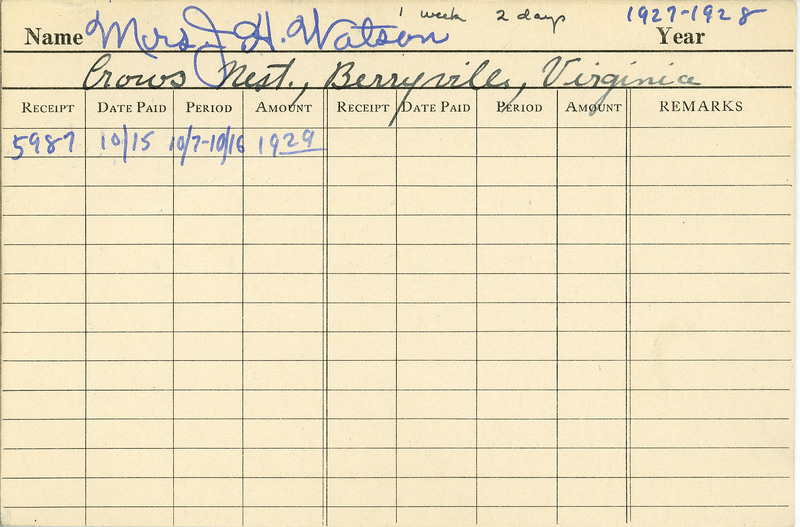 1 week 2 days 1927-1928
Name Mrs J H. Watson Year
Crows Nest., Berryville, Virginia
RECEIPT DATE PAID PERIOD AMOUNT RECEIPT DATE PAID PERIOD AMOUNT REMARKS
5987 10/15 10/7-10/16 1929